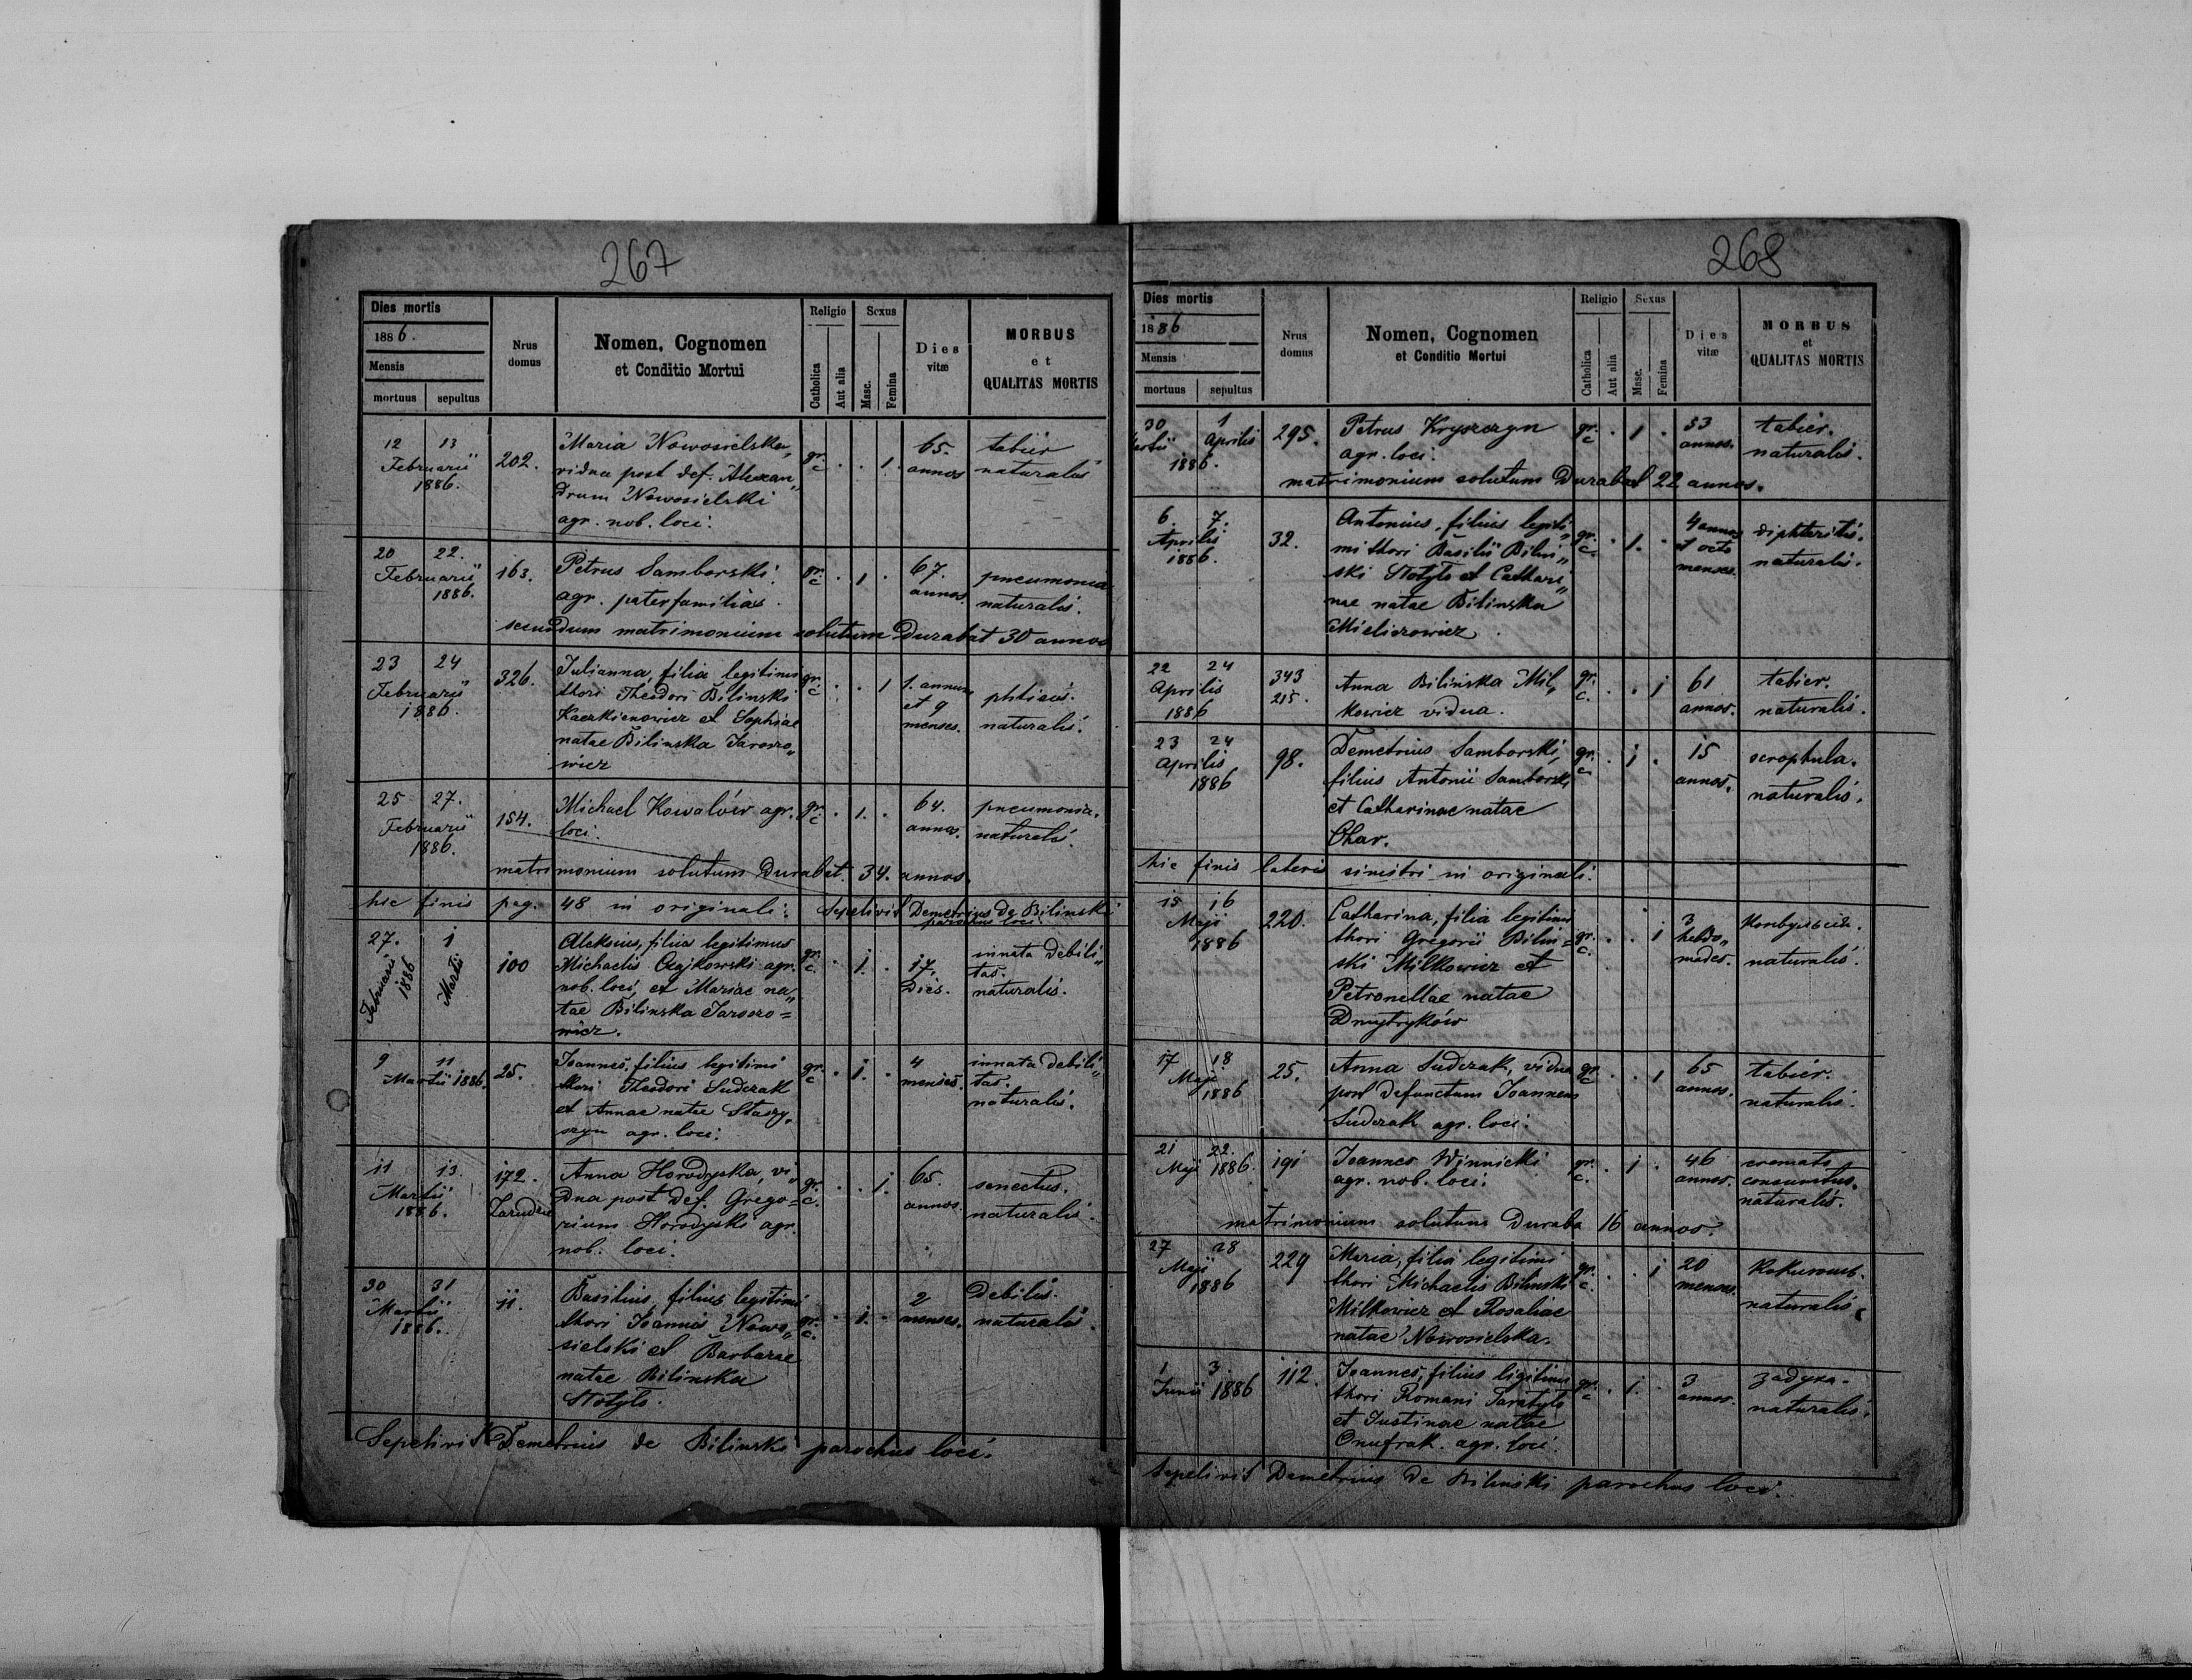 267
Dies mortis
1886.
Mensis
mortuus sepultus
Nrus domus
Nomen, Cognomen
et Conditio Mortui
Religio
Catholica
Aut alia
Sexus
Masc.
Femina
Dies vitæ
MORBUS
et
QUALITAS MORTIS
12 13 Februarii 1886. 202.
Maria Nowosielska,
vidua post def. Alexan„
drum Nowosielski
agr. nob. loci.
gr. c. 1. 65. annos
naturalis
20 22. Februarii 1886. 163.
Petrus Samborski.
agr. paterfamilias.
gr. c. 1. 67. annos.
pneumonia
naturalis.
secundum matrimonium solutum Durabat 30 annos
23 24 Februarii 1886. 326.
Julianna, filia legitimi
thori Theodori Bilinski
Kaczkienowicz et Sophiae
natae Bilinska Jaroszo„
wicz
gr. c. 1 1. annum
et 9
menses.
phtisis.
naturalis.
25 27. Februarii 1886. 154.
Michael Kowalów agr.
loci.
gr. c. 1. 64. annos.
pneumonia.
naturalis.
matrimonium solutum Durabat. 34. annos.
hic finis pag. 48 in originali. Sepelivit Demetrius de Bilinski
parochus loci.
27. Februarii 1886 1 Martii 100
Aleksius, filius legitimus
Michaelis Czajkowski agr.
nob. loci, et Mariae na„
tae Bilinska Jaroszo=
wicz.
gr. c. 1. 17. Dies.
innata debili„
tas.
naturalis.
9 11 Martii 1886. 25.
Joannes, filius legitimi
thori Theodori Sudczak
et Annae natae Staszy„
szyn agr. loci.
gr. c. 1. 4 menses.
innata debili„
tas.
naturalis.
11 13. Martii 1886. 172. Zarudzie
Anna Horodyska, vi„
dua post def. Grego=
rium Horodyski agr.
nob. loci.
gr. c. 1. 65. annos.
senectus.
naturalis.
30 31 Martii 1886. 11.
Basilius, filius legitimi
thori Joannis Nowo„
sielski et Barbarae
natae Bilinska
Stotyls.
gr. c. 1. 2 menses.
Debilis.
naturalis.
Sepelivit Demetrius de Bilinski parochus loci.
268
Dies mortis
1886
Mensis
mortuus sepultus
Nrus domus
Nomen, Cognomen
et Conditio Mortui
Religio
Catholica
Aut alia
Sexus
Masc.
Femina
Dies vitæ
MORBUS
et
QUALITAS MORTIS
30 Martii 1 Aprilis 1886. 295.
Petrus Kryszczyn
agr. loci.
gr. c. 1. 53 annos.
naturalis.
matrimonium solutum Durabat 22 annos.
6. 7. Aprilis 1886. 32.
Antonius, filius legiti„
mi thori Basilii Bilin„
ski Stotyls et Cathari„
nae natae Bilinska
Mieliczowicz.
gr. c. 1. 4 annos
et octo
menses.
diphteritis.
naturalis.
22 24 Aprilis 1886 343 215.
Anna Bilinska Mil„
kowicz vidua.
gr. c. 1 61 annos.
naturalis.
23 24 Aprilis 1886 98.
Demetrius Samborski,
filius Antonii Samborski
et Catharinae natae
Char.
gr. c. 1. 15 annos.
scrophula.
naturalis.
hic finis lateris sinistri in originali.
15 16 Maji 1886 220.
Catharina, filia legitimi
thori Gregorii Bilin=
ski Milkowicz et
Petronellae natae
Dmytryków
gr. c. 1 3 hebdo„
mades.
naturalis.
17 18 Maji 1886 25.
Anna Sudczak, vidua
post defunctum Joannem
Sudczak agr. loci.
gr. c. 1 65 annos.
naturalis.
21 22. Maji 1886. 191
Joannes Winnicki
agr. nob. loci.
gr. c. 1. 46 annos.
naturalis.
matrimonium solutum Duraba 16 annos.
27 28 Maji 1886 229
Maria, filia legitimi
thori Michaelis Bilinski
Milkowicz et Rosaliae
natae Nowosielska.
gr. c. 1 20 menses.
naturalis.
1 3. Junii 1886 112.
Joannes, filius ligitimi
thori Romani Taratyls
et Justinae natae
Onufrak. agr. loci.
gr. c. 1. 3 annos.
задуха.
naturalis.
Sepelivit Demetrius de Bilinski parochus loci.